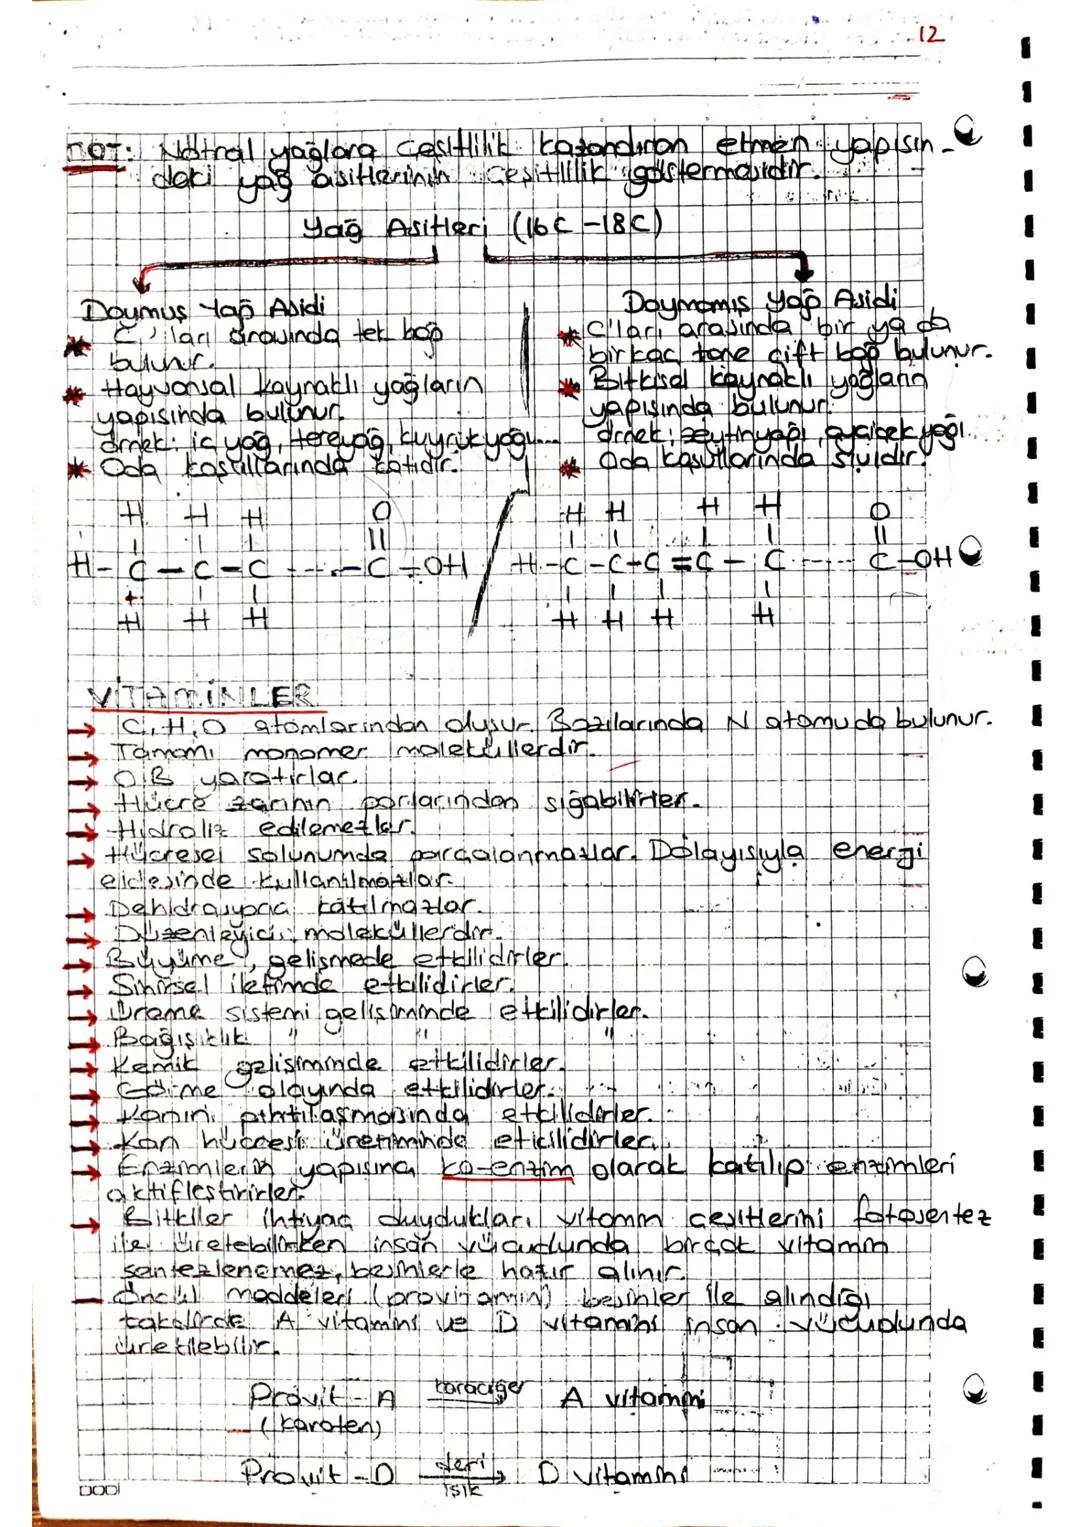 12
NOT: Nötral yağlara çeşitlilik kazandıran etmen yapısın-
daki yağ asitlerinin çeşitlilik göstermesidir.
Yağ Asitleri (16C-18C)
Doymuş Yağ Asidi
* C'ları arasında tek bağ
bulunur.
* Hayvansal kaynaklı yağların
yapısında bulunur.
örnek: iç yağ, tereyağ, kuyruk yağı...
* Oda koşullarında katıdır.
Doymamış Yağ Asidi
* C'ları arasında bir ya da
birkaç tane çift bağ bulunur.
* Bitkisel kaynaklı yağların
yapısında bulunur.
örnek: zeytinyağı, ayçiçek yağı
* Oda koşullarında sıvıdır.
H H H O H H H H O
H-C-C-C----C-OH / H-C-C-C=C-C----C-OH
H H H H H H H
VİTAMİNLER
→ C, H, O atomlarından oluşur. Bazılarında N atomu da bulunur.
→ Tamamı monomer moleküllerdir.
→ O.B yaratırlar.
→ Hücre zarının porlarından sığabilirler.
→ Hidroliz edilemezler.
→ Hücresel solunumda parçalanmazlar. Dolayısıyla enerji
eldesinde kullanılmazlar.
→ Dehidrasyona katılmazlar.
→ Düzenleyici moleküllerdir.
→ Büyüme, gelişmede etkilidirler.
→ Sinirsel iletimde etkilidirler.
→ Üreme sistemi gelişiminde etkilidirler.
→ Bağışıklık " " "
→ Kemik gelişiminde etkilidirler.
→ Görme olayında etkilidirler.
→ Kanın pıhtılaşmasında etkilidirler.
→ Kan hücresi üretiminde etkilidirler.
→ Enzimlerin yapısına ko-enzim olarak katılıp enzimleri
aktifleştirirler.
→ Bitkiler ihtiyaç duydukları vitamin çeşitlerini fotosentez
ile üretebilirken insan vücudunda birçok vitamin
sentezlenemez, besinlerle hazır alınır.
— Öncül maddeleri (provitamin) besinler ile alındığı
takdirde A vitamini ve D vitamini insan vücudunda
üretilebilir.
Provit-A karaciğer → A vitamini
(karoten)
Provit-D deri → D vitamini
ışık
DODİ